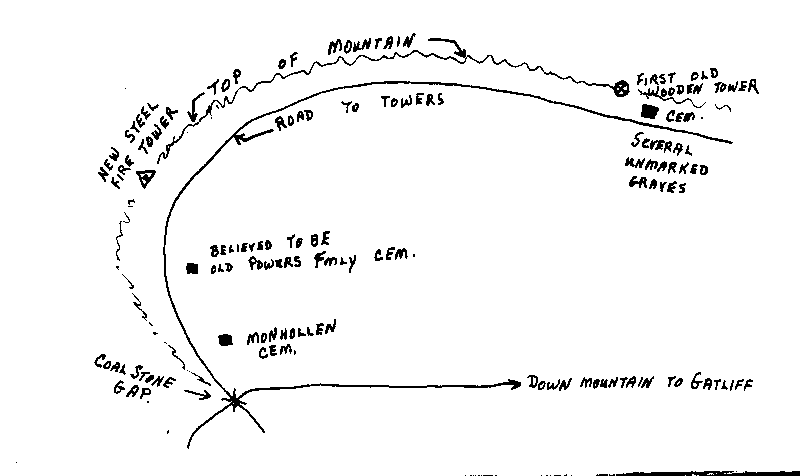 TOP OF MOUNTAIN
FIRST OLD
WOODEN TOWER
CEM.
ROAD TO TOWERS
NEW STEEL
FIRE TOWER
SEVERAL
UNMARKED
GRAVES
BELIEVED TO BE
OLD POWERS FMLY CEM.
MONHOLLEN
CEM.
COAL STONE
GAP.
DOWN MOUNTAIN TO GATLIFF